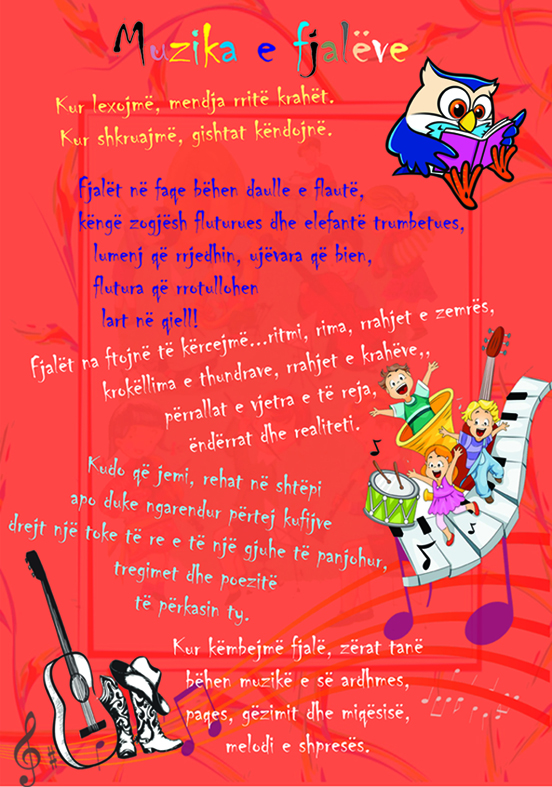 Muzika e fjalëve
Kur lexojmë, mendja rritë krahët.
Kur shkruajmë, gishtat këndojnë.
Fjalët në faqe bëhen daulle e flautë,
këngë zogjësh fluturues dhe elefantë trumbetues,
lumenj që rrjedhin, ujëvara që bien,
flutura që rrotullohen
lart në qiell!
Fjalët na ftojnë të kërcejmë...ritmi, rima, rrahjet e zemrës,
krokëllima e thundrave, rrahjet e krahëve,,
përrallat e vjetra e të reja,
ëndërrat dhe realiteti.
Kudo që jemi, rehat në shtëpi
apo duke ngarendur përtej kufijve
drejt një toke të re e të një gjuhe të panjohur,
tregimet dhe poezitë
të përkasin ty.
Kur këmbejmë fjalë, zërat tanë
bëhen muzikë e së ardhmes,
paqes, gëzimit dhe miqësisë,
melodi e shpresës.